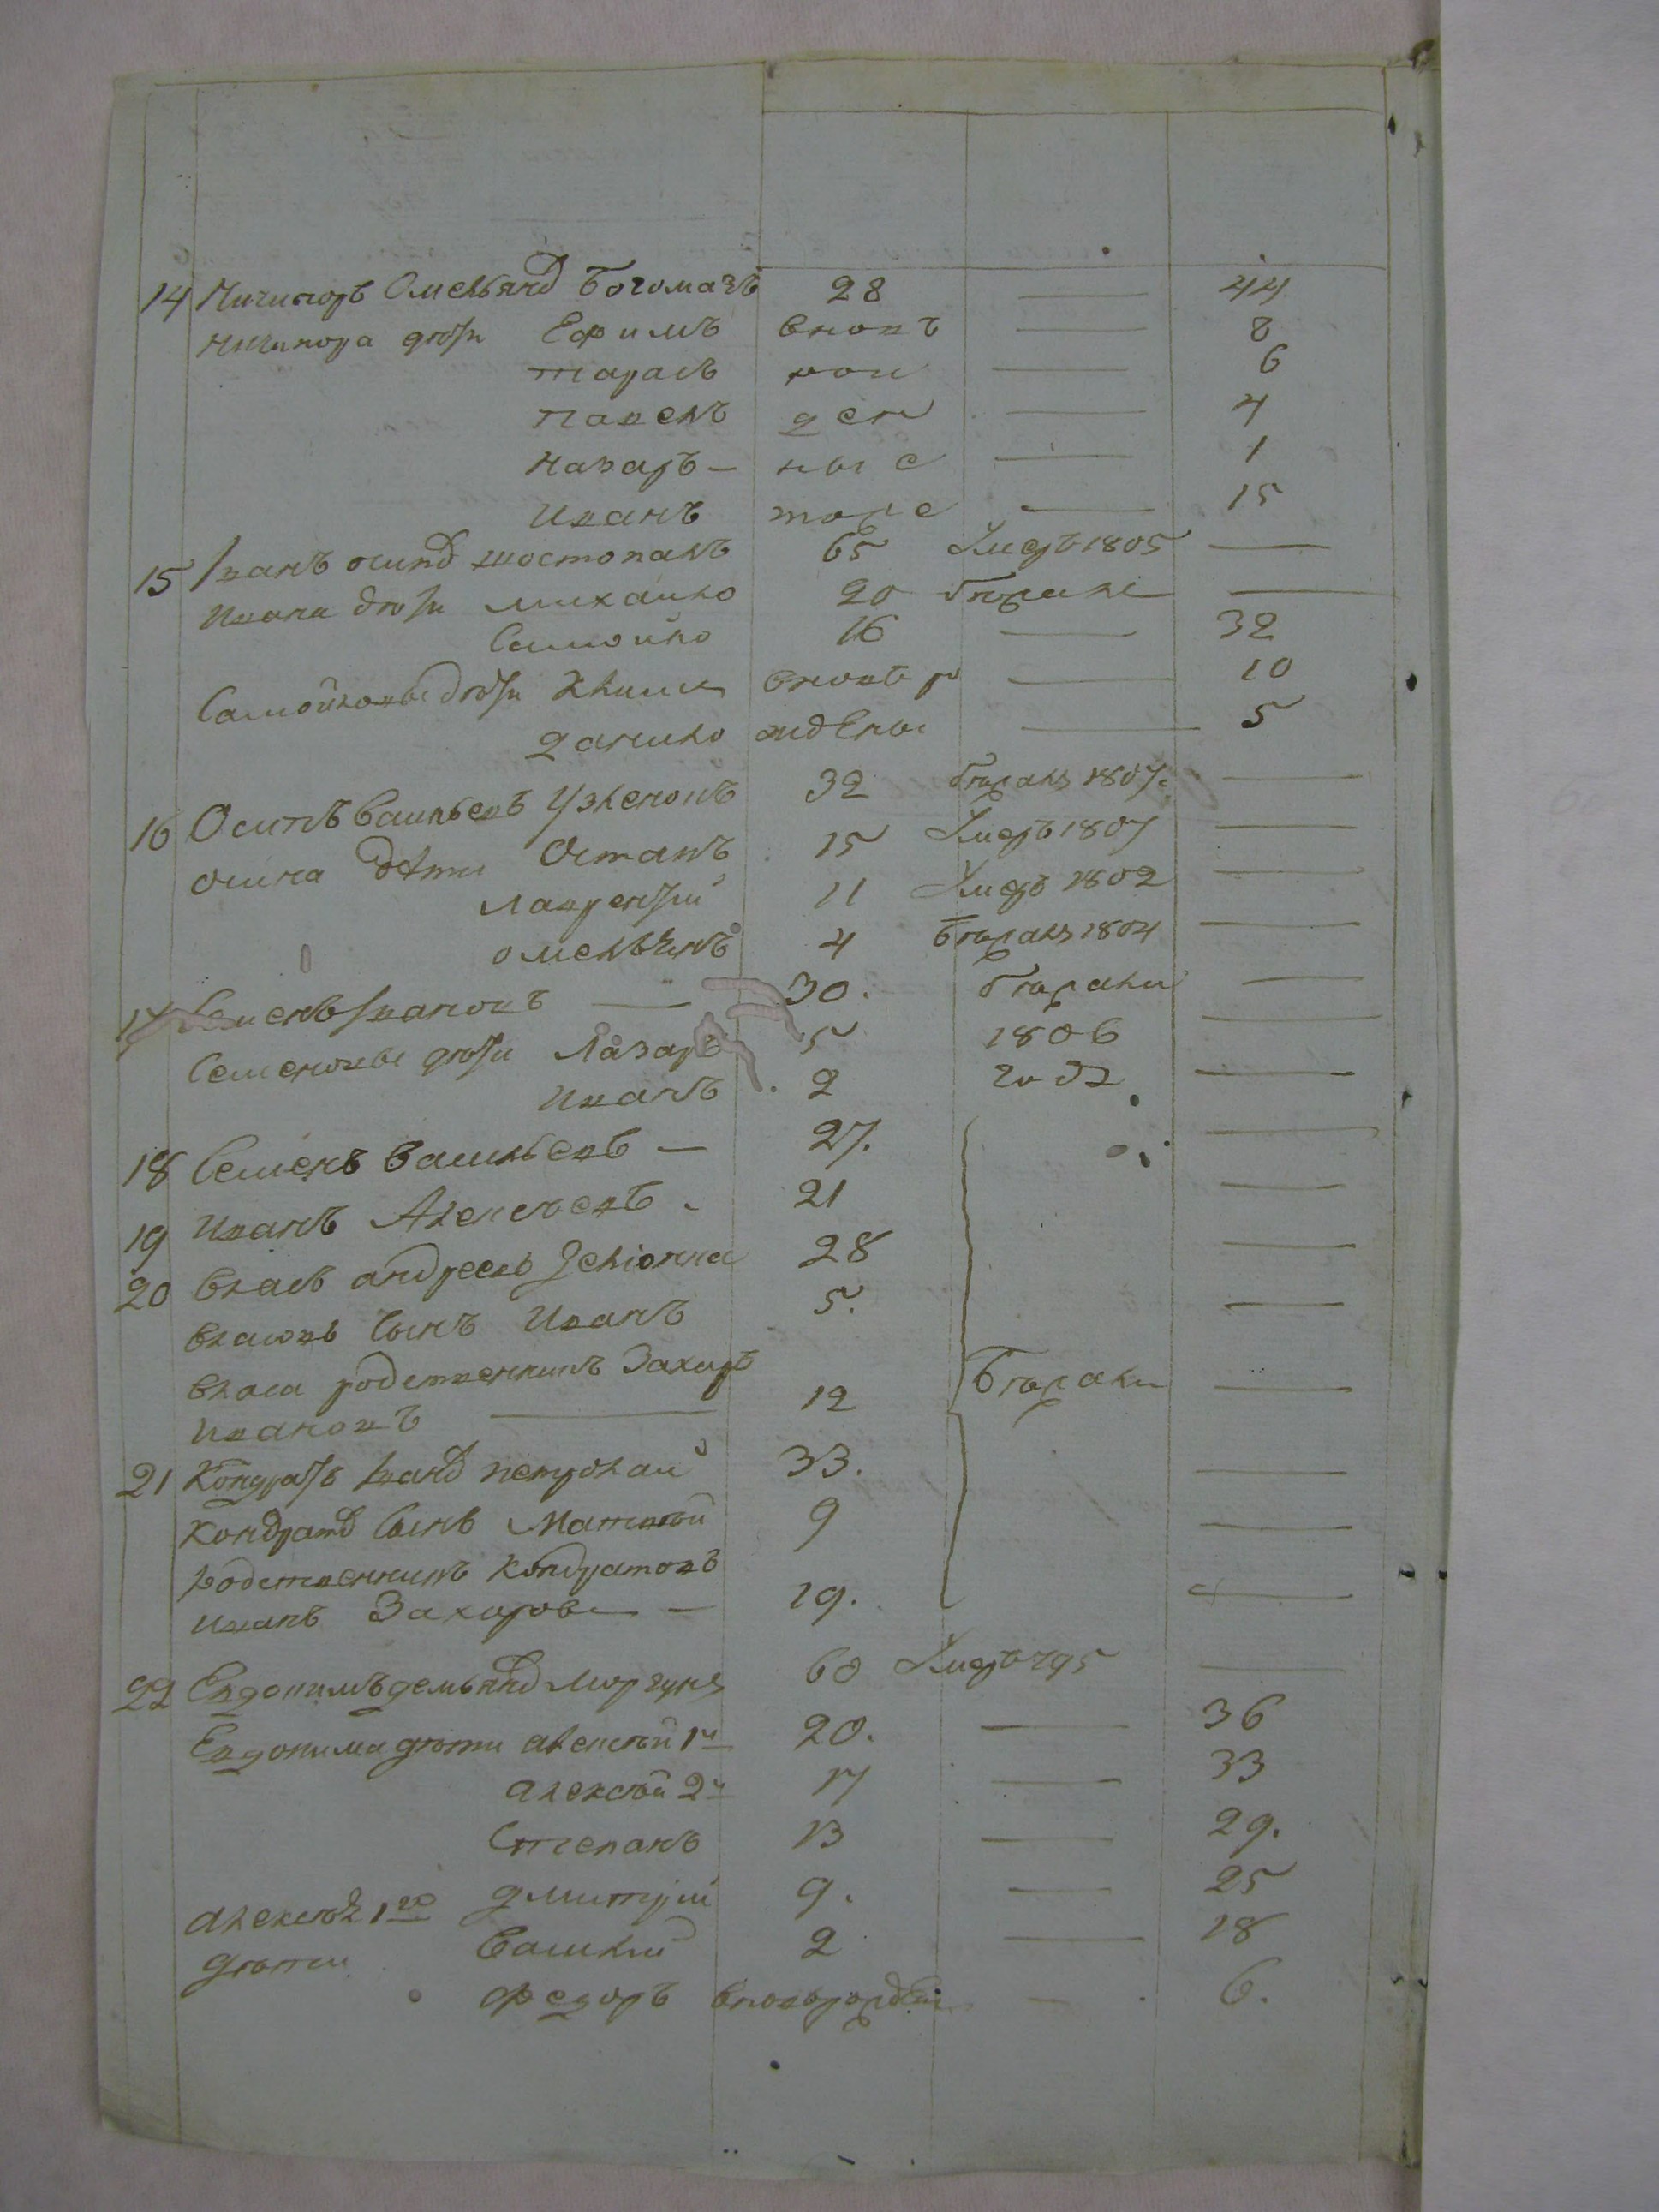 14 Ничипоръ Омельянд Богомазъ 28 — 44
Ничипора дѣти Ефимъ вновъ — 8
Тарасъ рож — 6
Павелъ ден — 4
Назаръ — ные — 1
Иванъ тоже — 15
15 Іванъ осипд шостопалъ 65 Умеръ 1805 —
Ивана дѣти михайло 20 бѣжале —
Самойло 16 — 32
Самойловы дѣти Климъ вновъ ро — 10
данило ждены — 5
16 Осипъ Васильевъ 32 бѣжалъ 1807 —
Осипа дѣти Остапъ 15 Умеръ 1807 —
лаврентій 11 Умеръ 1802 —
омельянъ 4 бѣжалъ 1804 —
17 Семенъ Івановъ — 30. бѣжали —
Семеновы дѣти Лазаръ 5 1806 —
Иванъ 2 года —
18 Семенъ Васильевъ — 27. —
19 Иванъ Алексѣевъ - 21 —
20 Власъ андреевъ 28 —
Власовъ Сынъ Иванъ 5. —
Власа родственникъ Захаръ
Ивановъ — 12 Бѣжали —
21 Кондратъ Іванд 33. —
Кондратд Сынъ Матвѣй 9 —
родственникъ Кондратовъ
Иванъ Захаровъ — 19. —
22 Евдокимъ демьянд моргунъ 60 Умеръ 795 —
Евдокима дѣти алексѣй 1й 20. — 36
алексѣй 2й 17 — 33
Степанъ 13 — 29.
дмитрій 9. — 25
алексѣя 1го
дѣти Василій 2 — 18
Федоръ вновърожден — 6.